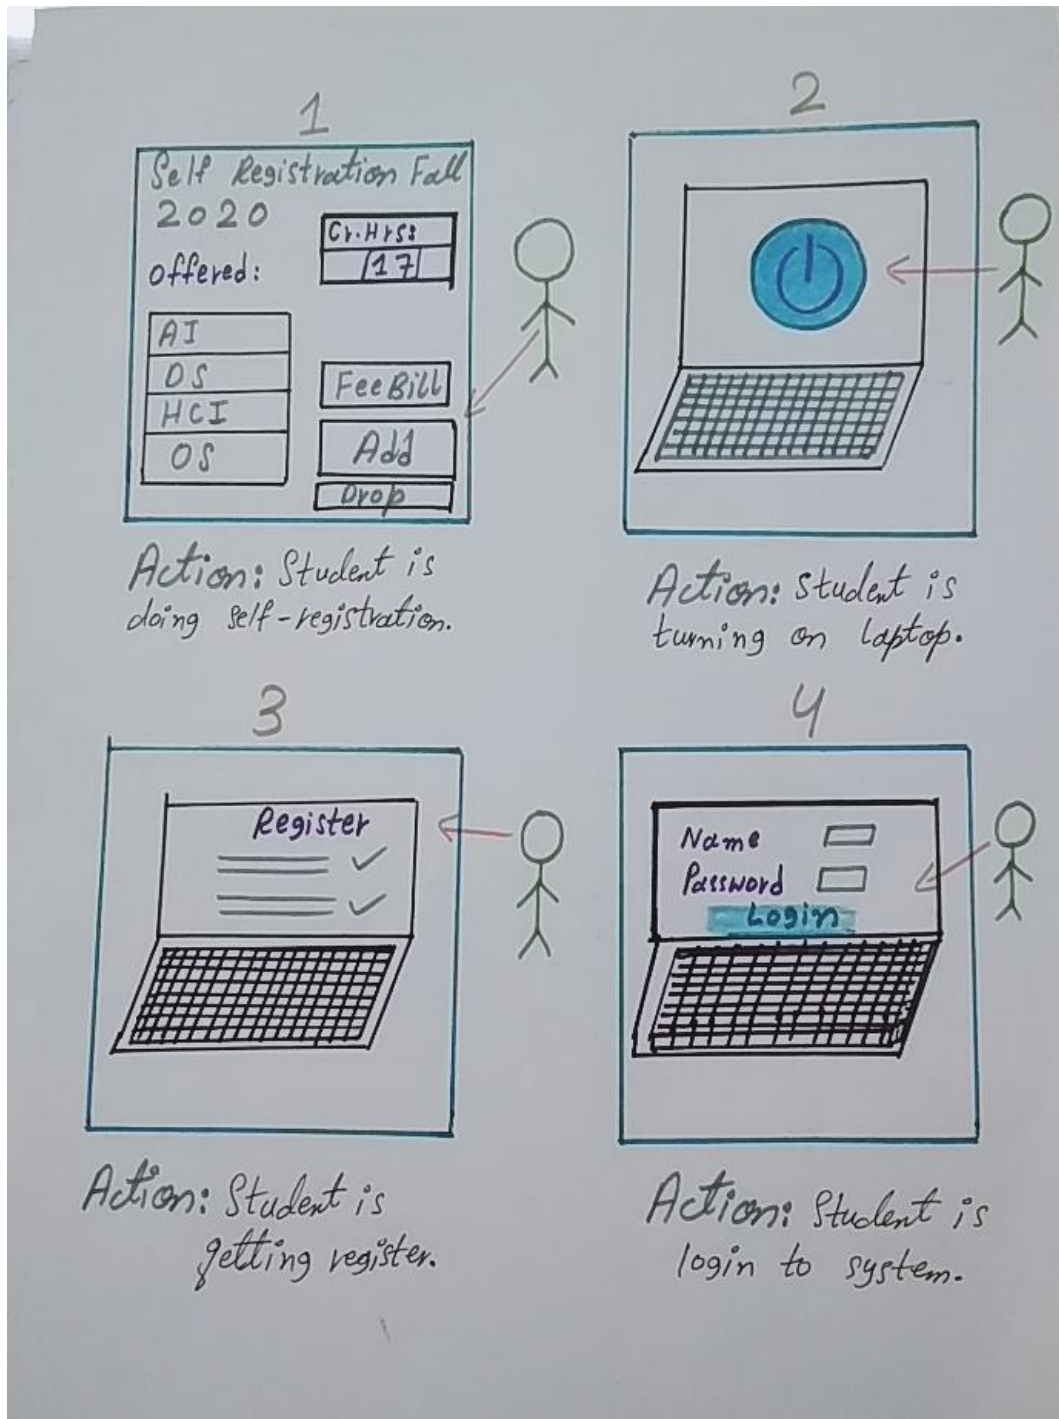 1
Self Registration Fall
2020
Cr.Hrs:
17
offered:
AI
DS
HCI
OS
FeeBill
Add
Drop
Action: Student is
doing self-registration.
2
Action: Student is
turning on laptop.
3
Register
Action: Student is
getting register.
4
Name
Password
Login
Action: Student is
login to system.